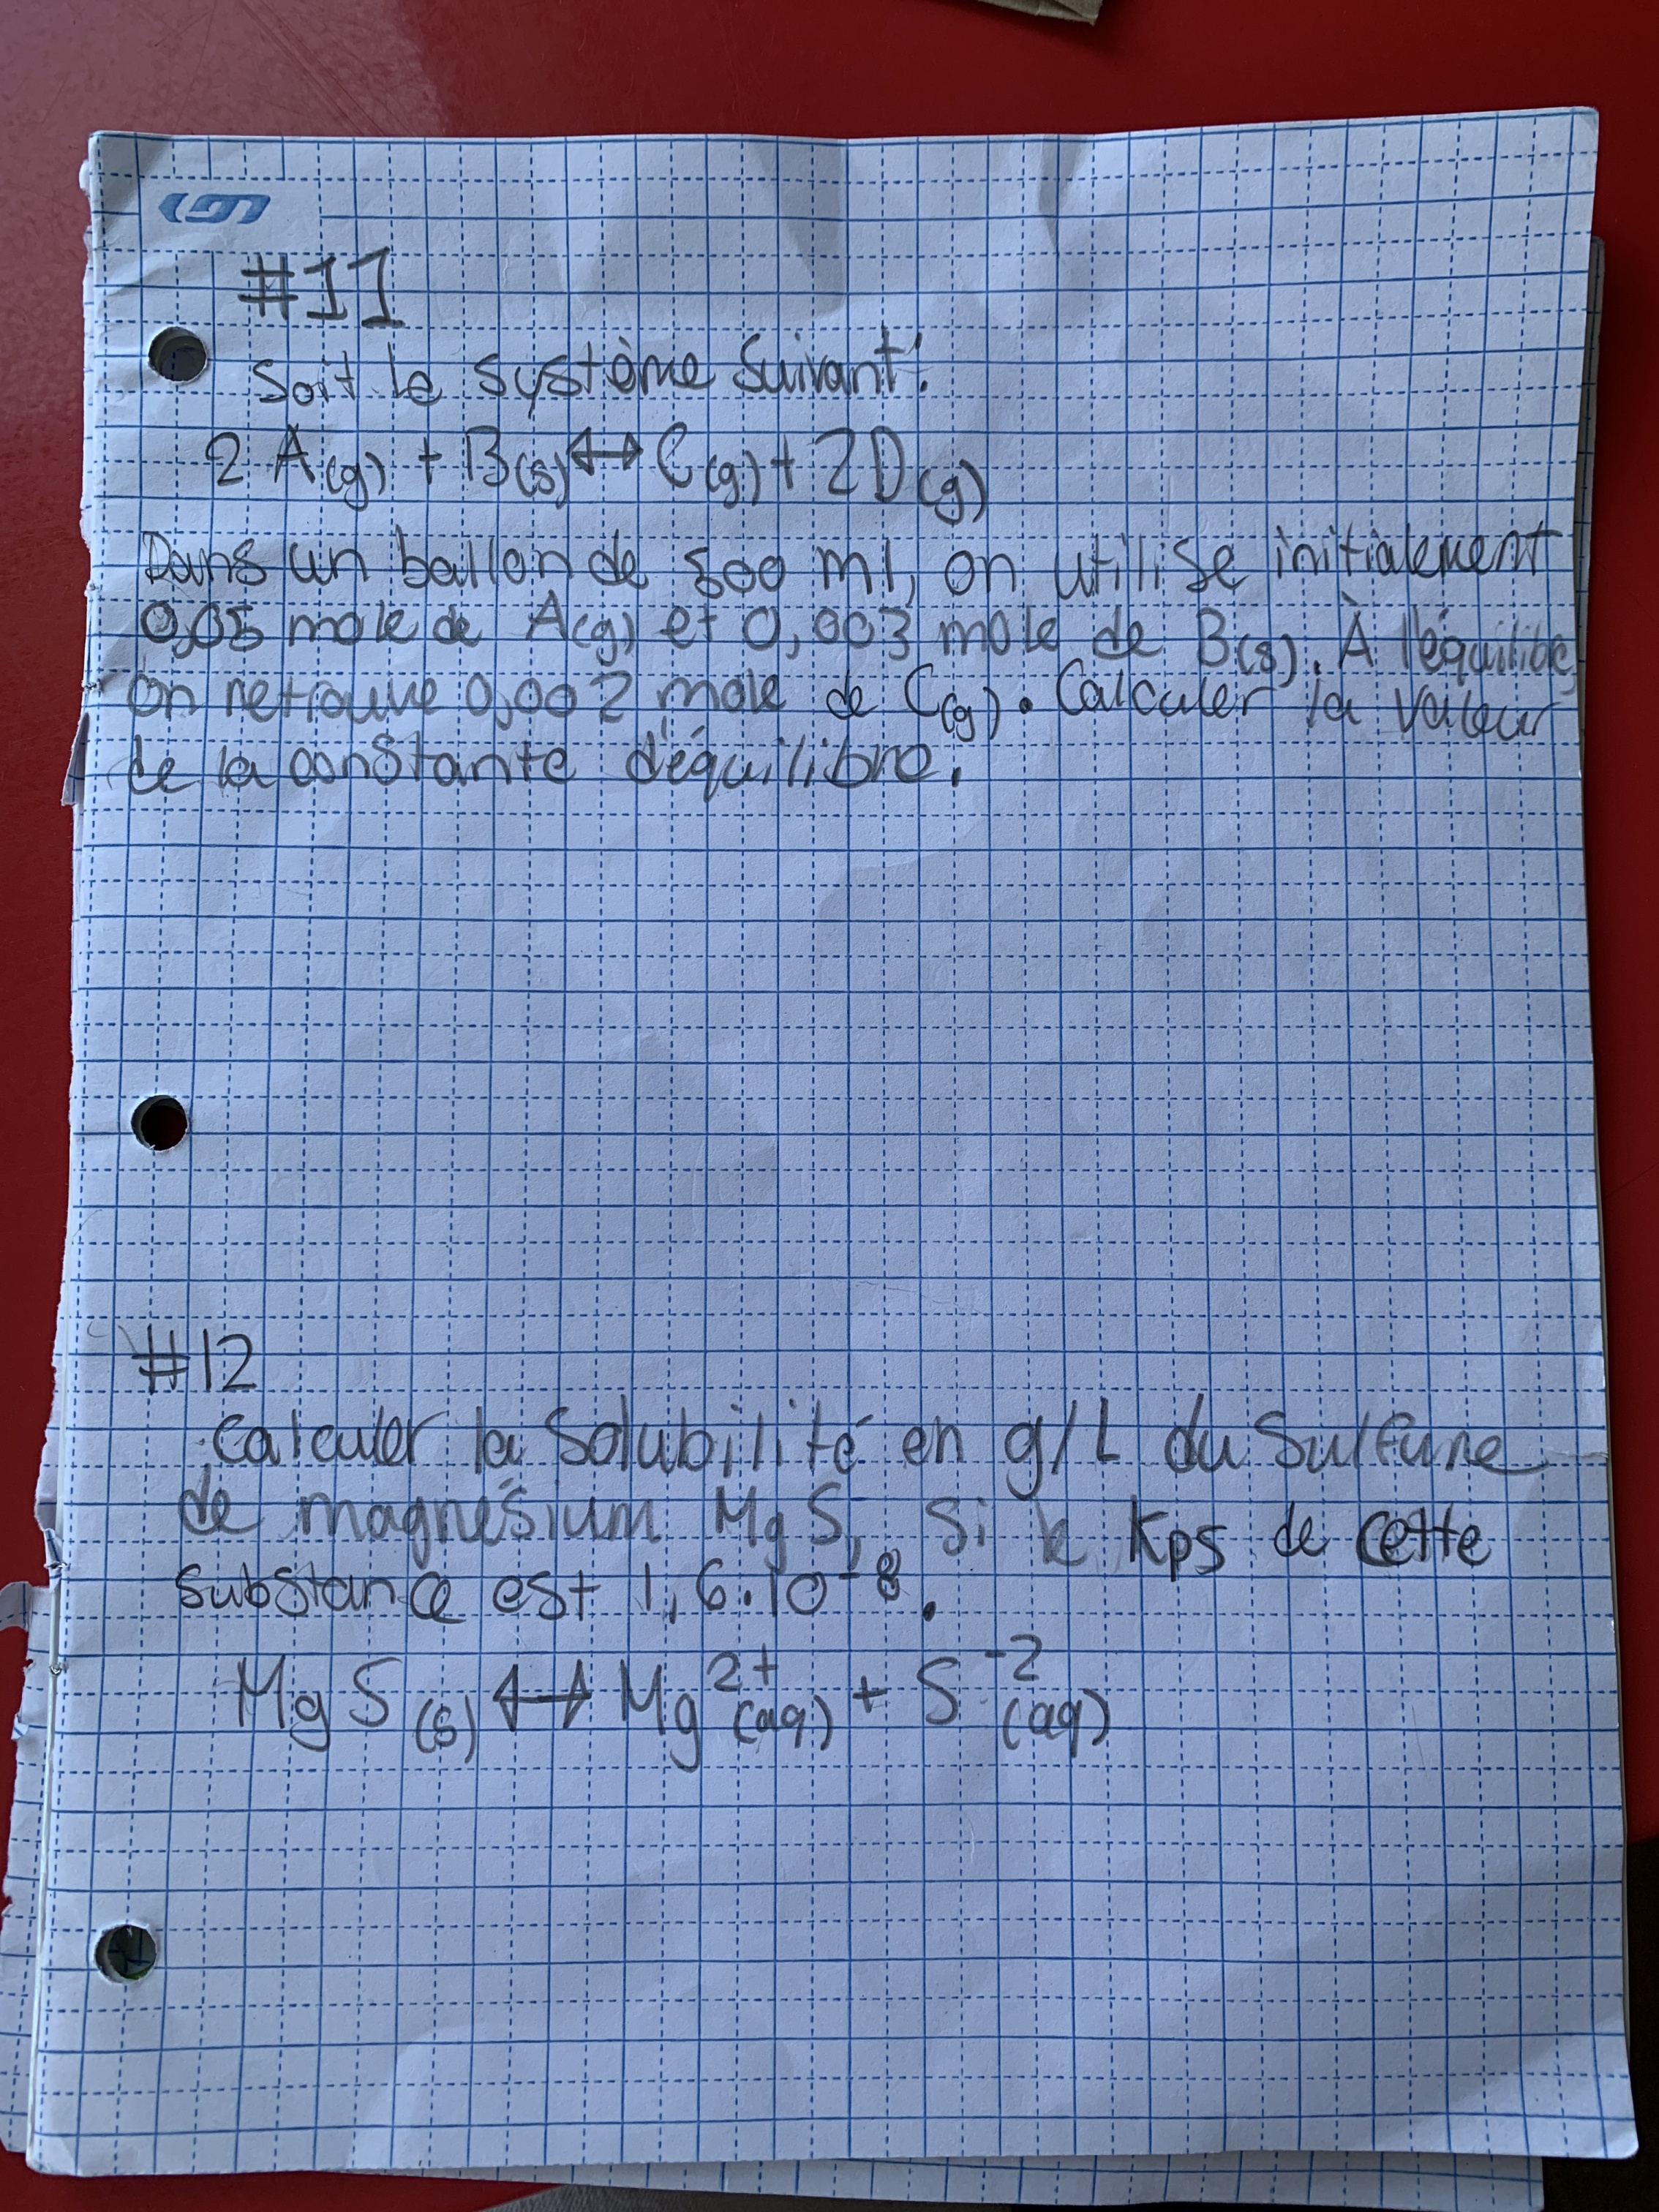 #11
Soit le système suivant:
2 A(g) + B(s) ↔ C(g) + 2D(g)
Dans un ballon de 500 ml, on utilise initialement
0,05 mole de A(g) et 0,003 mole de B(s). À l'équilibre,
on retrouve 0,002 mole de C(g). Calculer la valeur
de la constante d'équilibre.
#12
Calculer la solubilité en g/L du Sulfure
de magnésium MgS, si le Kps de cette
substance est 1,6·10⁻⁸.
MgS(s) ↔ Mg²⁺(aq) + S⁻²(aq)